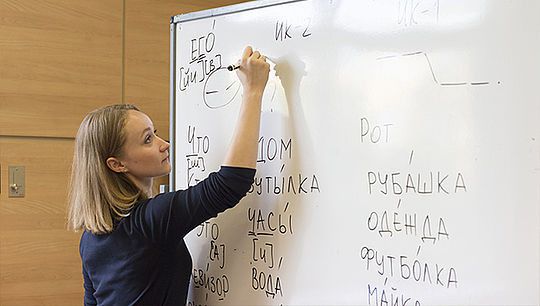 ЕГО́
[йи] [в]
ИК-2
ИК-1
ЧТО
[ш]
ДОМ
БУТЫ́ЛКА
ЧАСЫ́
[и]
ВОДА́
[А]
РОТ
РУБА́ШКА
ОДЕ́ЖДА
ФУТБО́ЛКА
МА́ЙКА